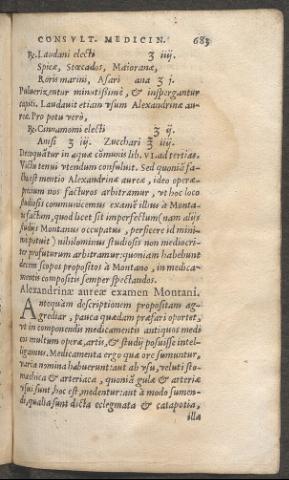 CONSVLT. MEDICIN. 683
℞. Laudani electi ʒ iiij.
Spicæ, Stœcados, Maioranæ,
Roris marini, Asari ana ʒ j.
Puluerizentur minutissimè, & inspergantur
capiti. Laudauit etiam vsum Alexandrinæ au-
reæ. Pro potu verò,
℞. Cinnamomi electi ʒ ij.
Anisi ʒ iij. Zucchari ℥ iiij.
Decoquãtur in aquæ cõmunis lib. VI. ad tertias.
Victu tenui vtendum consuluit. Sed quoniã fa-
cta est mentio Alexandrinæ aureæ, ideo operæ-
precium nos facturos arbitramur, vt hoc loco
studiosis communicemus examẽ illius à Monta-
no factum, quod licet sit imperfectum (nam alijs
studijs Montanus occupatus, perficere id mini-
mè potuit) nihilominus studiosis non mediocri-
ter profuturum arbitramur: quoniam habebunt
decem scopos propositos à Montano, in medica-
mentis compositis semper spectandos.
Alexandrinæ aureæ examen Montani.
Antequàm descriptionem propositam ag-
grediar, pauca quædam præfari oportet,
vt in componendis medicamentis antiquos medi
cos multum operæ, artis, & studij posuisse intel-
ligamus. Medicamenta ergo quæ ore sumuntur,
varia nomina habuerunt: aut ab vsu, veluti sto-
machica & arteriaca, quoniã gulæ & arteriæ
vsui sunt, hoc est, medentur: aut à modo sumen-
di, qualia sunt dicta eclegmata & catapotia,
illa